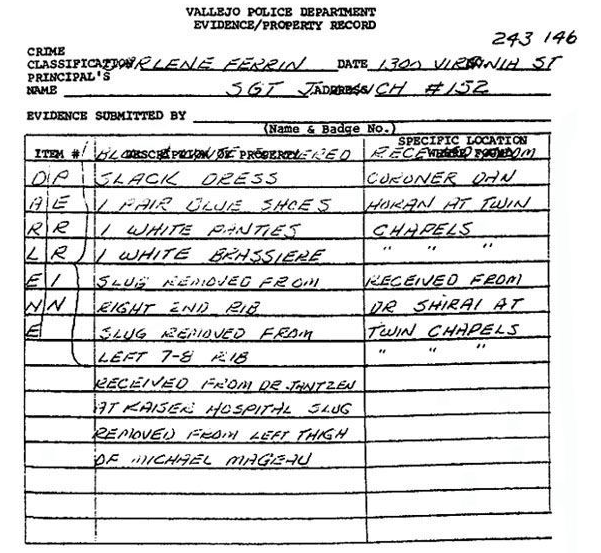 VALLEJO POLICE DEPARTMENT
EVIDENCE/PROPERTY RECORD
243 146
CRIME
CLASSIFICATION DARLENE FERRIN DATE 1300 VIRGINIA ST
PRINCIPAL'S
NAME SGT J. ADDRESS #152
EVIDENCE SUBMITTED BY
(Name & Badge No.)
ITEM # DESCRIPTION OF PROPERTY SPECIFIC LOCATION
RECEIVED FROM
D P SLACK DRESS CORONER DAN
A E 1 PAIR BLUE SHOES HORAN AT TWIN
R R 1 WHITE PANTIES CHAPELS
L R 1 WHITE BRASSIERE " " "
E I SLUG REMOVED FROM RECEIVED FROM
N N RIGHT 2ND RIB DR SHIRAI AT
E SLUG REMOVED FROM TWIN CHAPELS
LEFT 7-8 RIB " " "
RECEIVED FROM DR JANTZEN
AT KAISER HOSPITAL SLUG
REMOVED FROM LEFT THIGH
OF MICHAEL MAGEAU